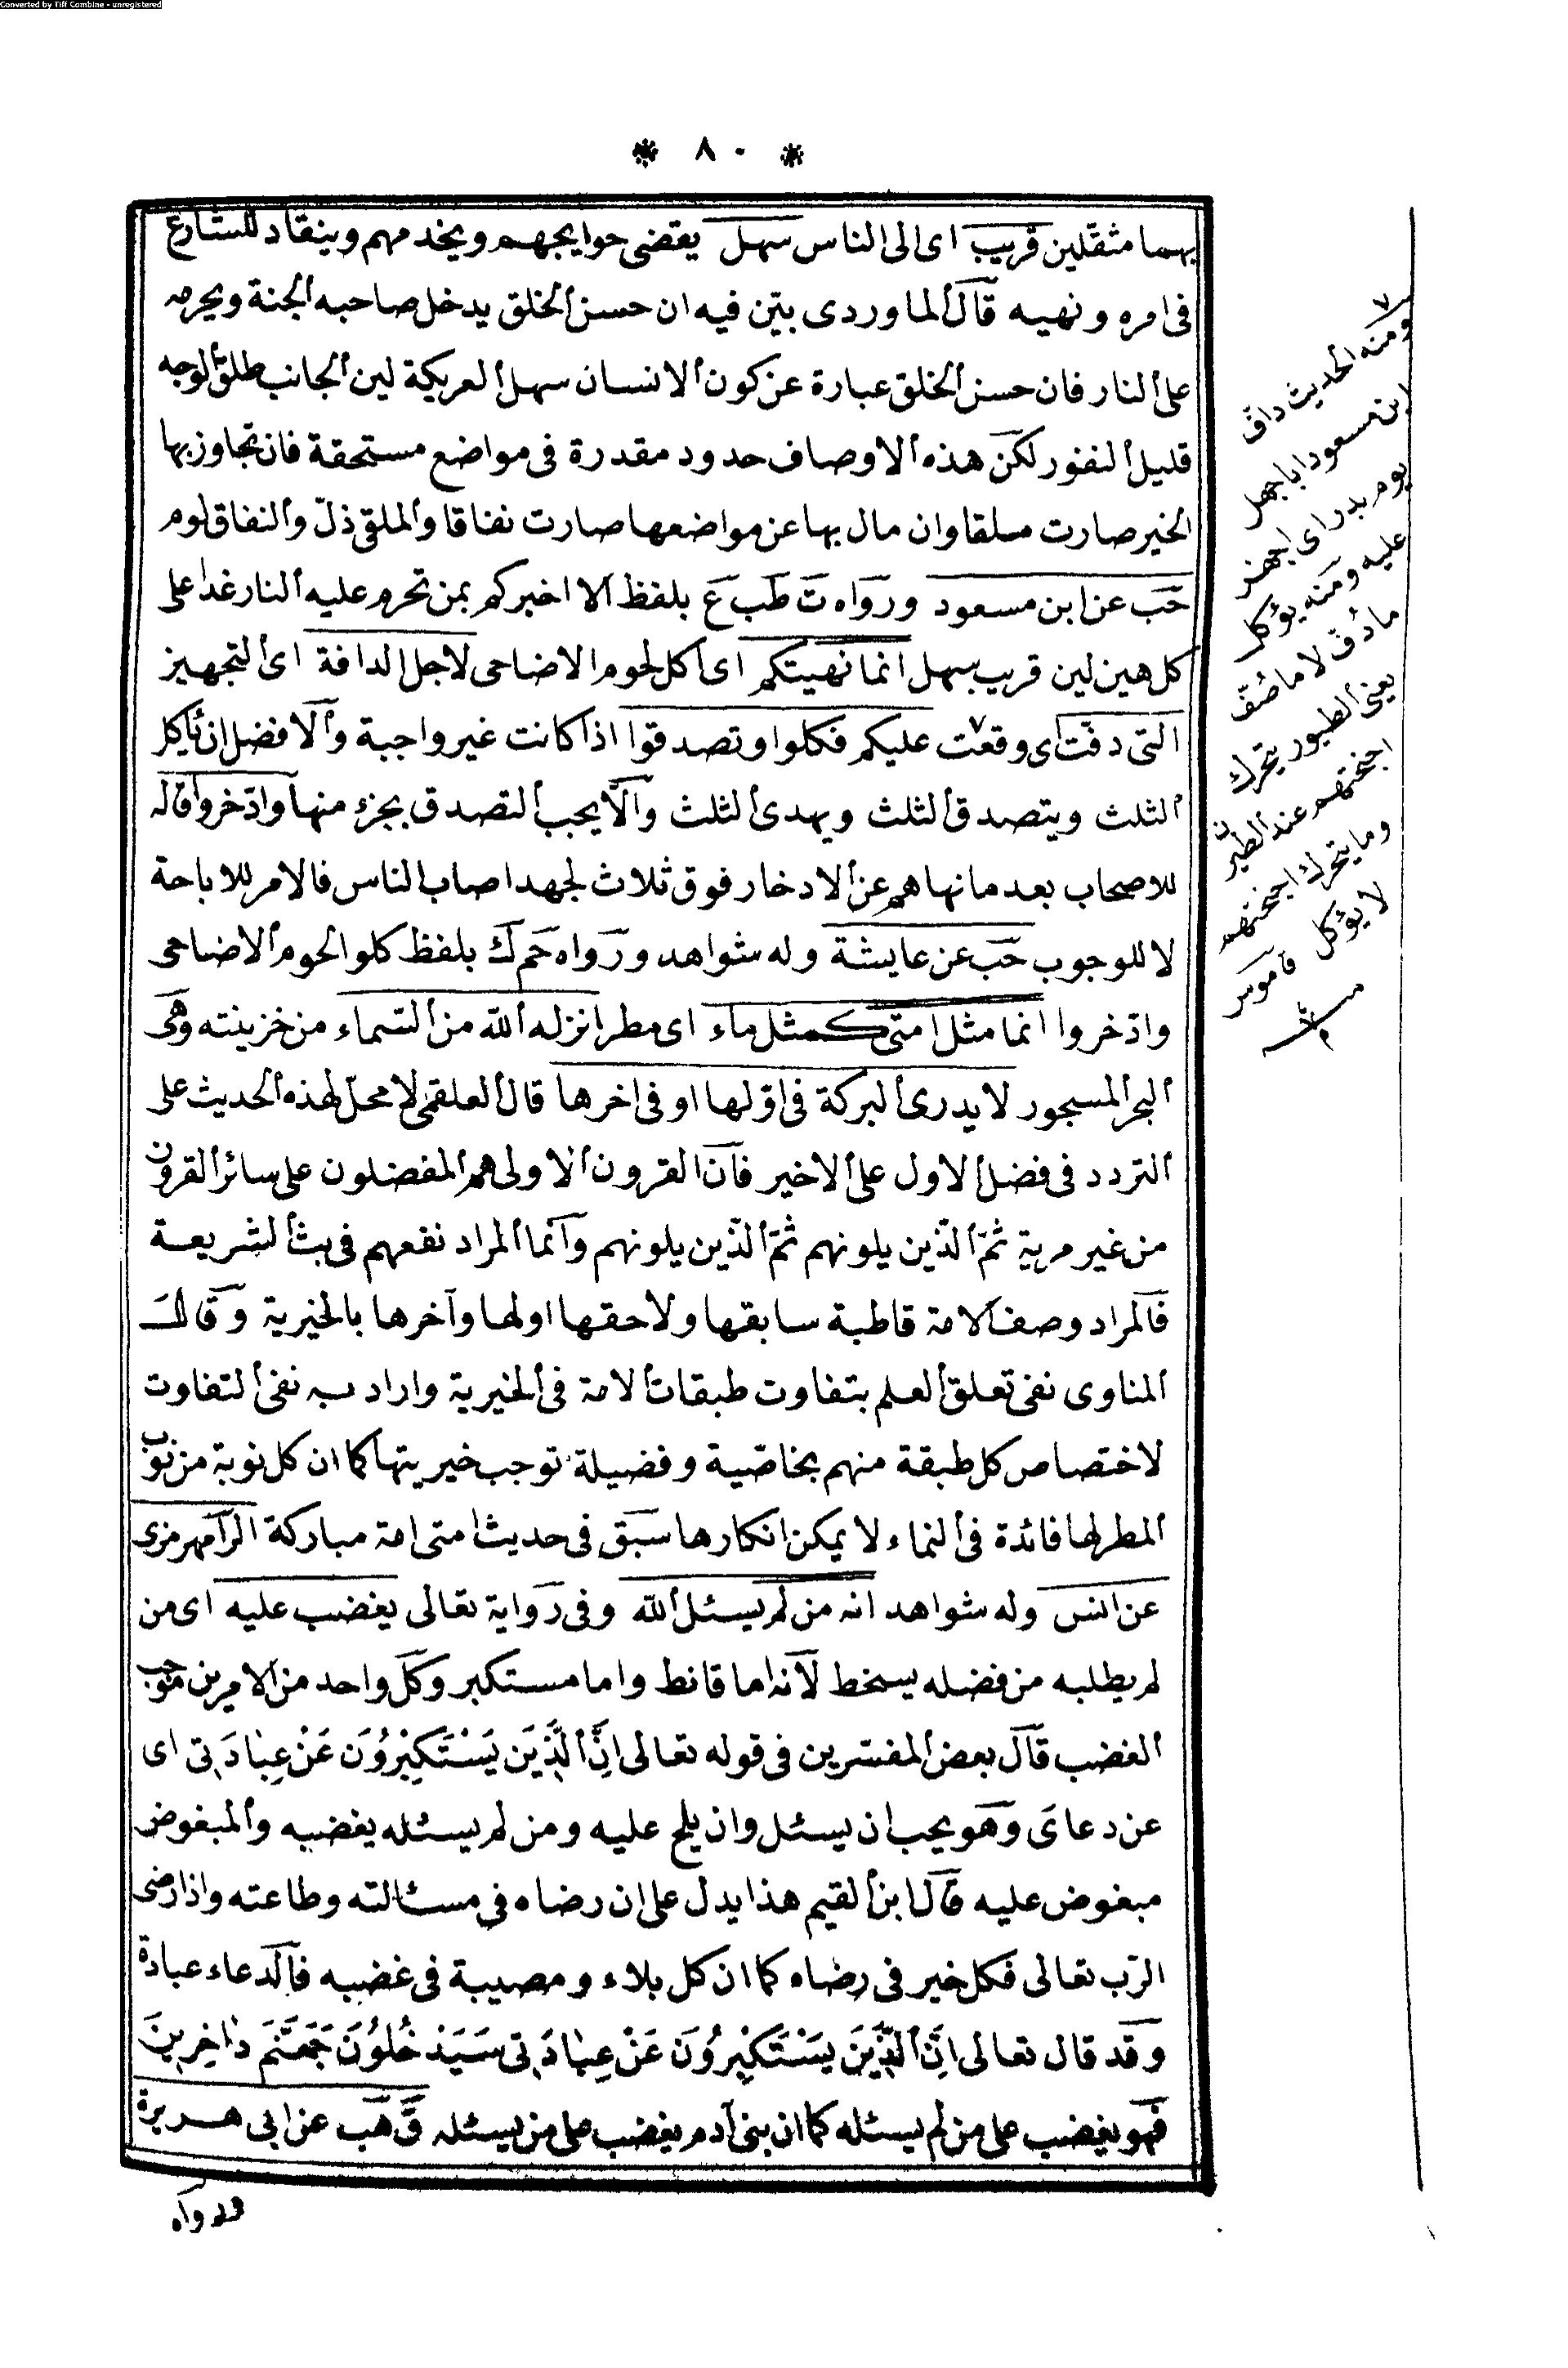 Converted by Tiff Combine - unregistered
* ٨٠ *
بهما مثقلين قريب اى الى الناس سهل يقضى حوايجهم ويخدمهم وينقاد للشارع
فى امره ونهيه قال الماوردى بيّن فيه ان حسن الخلق يدخل صاحبه الجنة ويحرمه
على النار فان حسن الخلق عبارة عن كون الانسان سهل العريكة لين الجانب طلق الوجه
قليل النفور لكن هذه الاوصاف حدود مقدرة فى مواضع مستحقة فان تجاوز بها
الخير صارت ملقا وان مال بها عن مواضعها صارت نفاقا والملق ذلّ والنفاق لوم
حب عن ابن مسعود ورواه ت طب ع بلفظ الا اخبركم بمن تحرم عليه النار غدا على
كل هين لين قريب سهل انما نهيتكم اى كل لحوم الاضاحى لاجل الدافة اى التجهيز
التى دفّت اى وقعت٧ عليكم فكلوا وتصدقوا اذا كانت غير واجبة والافضل ان يأكل
الثلث ويتصدق الثلث ويهدى الثلث والّا يجب التصدق بجزء منها وادّخروا قاله
للاصحاب بعد ما نهاهم عن الادخار فوق ثلاث لجهد اصاب الناس فالامر للاباحة
لا للوجوب حب عن عايشة وله شواهد ورواه حم ك بلفظ كلوا لحوم الاضاحى
وادّخروا انما مثل امتى كمثل ماء اى مطر انزله الله من السّماء من خزينته وهى
البحر المسجور لا يدرى البركة فى اوّلها او فى اخرها قال العلقمى لا محلّ لهذه الحديث على
التردد فى فضل الاول على الاخير فان القرون الاولى هم المفضلون على سائر القرون
من غير مرية ثمّ الذّين يلونهم ثمّ الذّين يلونهم وانما المراد نفعهم فى بث الشريعة
فالمراد وصف الامة قاطبة سابقها ولاحقها اولها وآخرها بالخيرية وقال
المناوى نفى تعلق العلم بتفاوت طبقات الامة فى الخيرية واراد به نفى التفاوت
لاختصاص كل طبقة منهم بخاصّية وفضيلة توجب خيريتها كما ان كل نوبة من نوب
المطر لها فائدة فى النماء لا يمكن انكارها سبق فى حديث امتى امة مباركة الرامهرمزى
عن انس وله شواهد انه من لم يسئل الله وفى رواية تعالى يغضب عليه اى من
لم يطلبه من فضله يسخط لانه اما قانط واما مستكبر وكل واحد من الامرين موجب
الغضب قال بعض المفسّرين فى قوله تعالى اِنَّ الَّذِينَ يَسْتَكْبِرُونَ عَنْ عِبَادَتِى اى
عن دعاى وهو يحب ان يسئل وان يلح عليه ومن لم يسئله يغضبه والمبغوض
مبغوض عليه قال ابن القيم هذا يدل على ان رضاه فى مسئالته وطاعته واذا رضى
الرّب تعالى فكل خير فى رضاه كما ان كل بلاء ومصيبة فى غضبه فالدعاء عبادة
وقد قال تعالى اِنَّ الَّذِينَ يَسْتَكْبِرُونَ عَنْ عِبَادَتِى سَيَدْخُلُونَ جَهَنَّمَ دَاخِرِينَ
فهو يغضب على من لم يسئله كما ان بنى آدم يغضب على من يسئله ق هب عن ابى هريرة
ورواه
٧
ومنه الحديث دافّ
ابن مسعود ابا جهل
يوم بدر اى اجهز
عليه ومنه يؤكل
ما دفّ لا ما صفّ
يعنى الطيور يتحرك
اجنحتهم عند الطيرن
وما يتحرك اجنحتهم
لا يؤكل قاموس